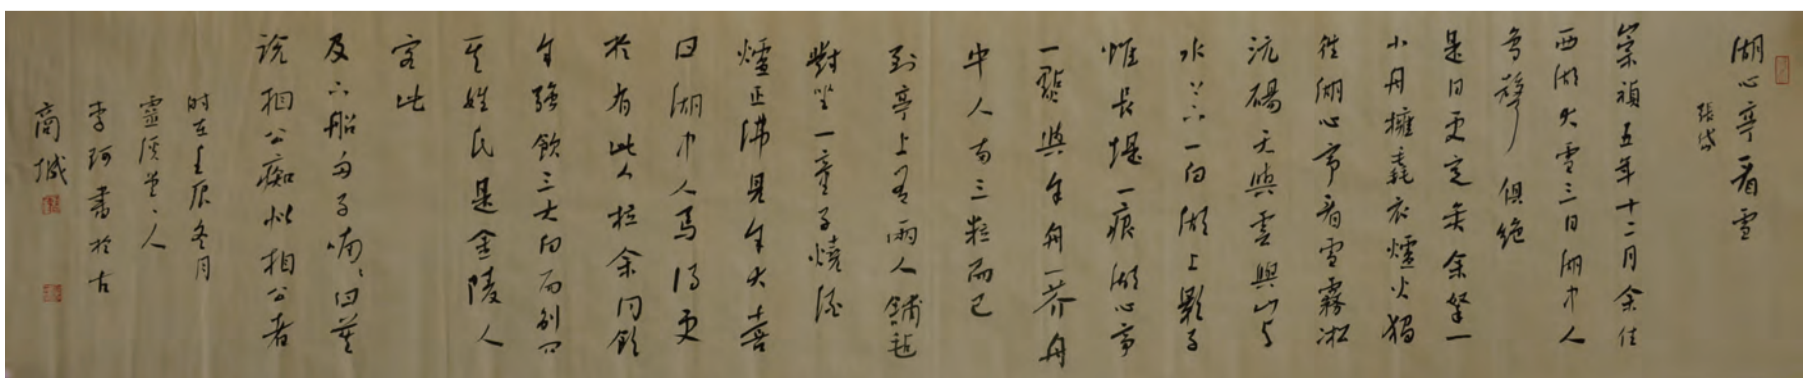 湖心亭看雪
張岱
崇禎五年十二月余住
西湖大雪三日湖中人
鳥聲俱絕
是日更定矣余拏一
小舟擁毳衣爐火獨
往湖心亭看雪霧凇
沆碭天與雲與山与
水上下一白湖上影子
惟長堤一痕湖心亭
一點與余舟一芥舟
中人兩三粒而已
到亭上有兩人鋪氈
對坐一童子燒酒
爐正沸見余大喜
曰湖中人焉得更
於有此人拉余同飲
余強飲三大白而別問
其姓氏是金陵人
客此
及下船舟子喃々曰莫
說相公痴似相公者
時在壬辰冬月
靈人
李珂書於古
商城